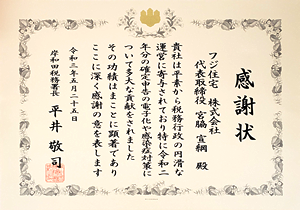 感謝状
フジ住宅 株式会社
代表取締役 宮脇 宣綱 殿
貴社は平素から税務行政の円滑な
運営に寄与されており特に令和二
年分の確定申告の電子化や感染症対策に
ついて多大な貢献をされました
その功績はまことに顕著であり
ここに深く感謝の意を表します
令和三年五月二十五日
岸和田税務署長 平井 敬司